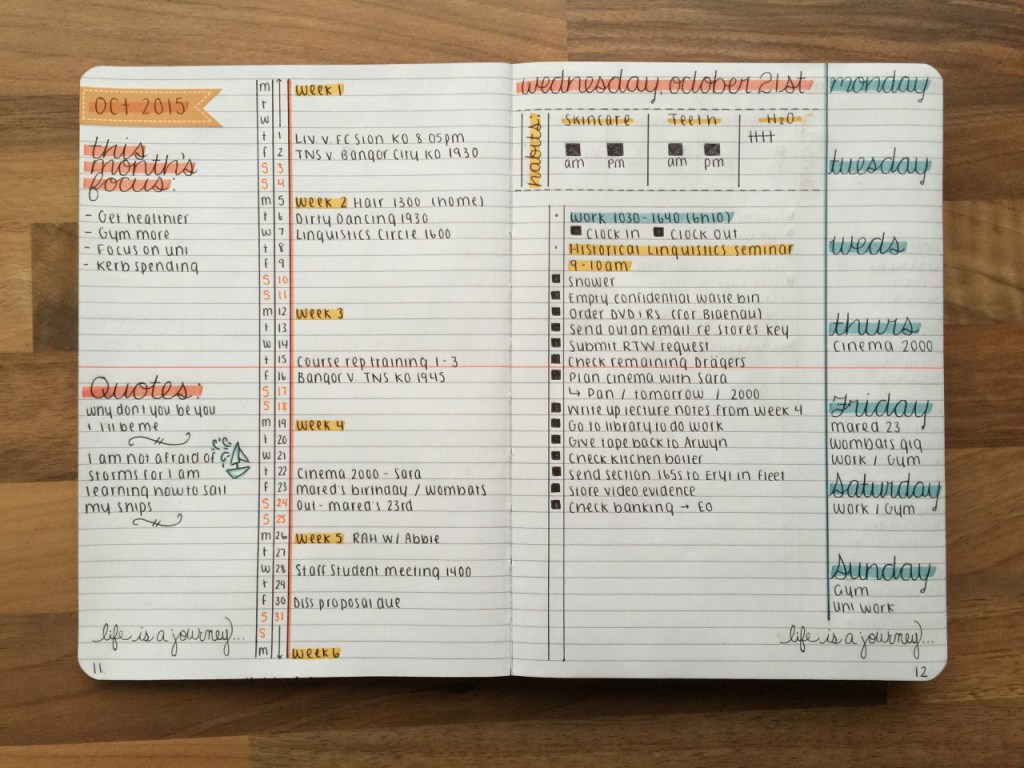 OCT 2015
this
month's
focus:
- Get healthier
- Gym more
- Focus on uni
- Kerb spending
Quotes:
why don't you be you
+ I'll be me
I am not afraid of
storms for I am
learning how to sail
my ships
life is a journey...
11
m Week 1
t
w
t 1 LIV V. FC SION KO 8.05pm
f 2 TNS V. Bangor City KO 1930
S 3
S 4
m 5 Week 2 Hair 1300 (home)
t 6 Dirty Dancing 1930
w 7 Linguistics Circle 1600
t 8
f 9
S 10
S 11
m 12 Week 3
t 13
w 14
t 15 Course rep training 1-3
f 16 Bangor V. TNS KO 1945
S 17
S 18
m 19 Week 4
t 20
w 21
t 22 Cinema 2000 - Sara
f 23 mared's birthday / Wombats
S 24 Out - mared's 23rd
S 25
m 26 Week 5 RAH W/ Abbie
t 27
w 28 Staff Student meeting 1400
t 29
f 30 Diss proposal due
S 31
S
m Week 6
wednesday, october 21st
habits:
Skincare Teeth H2O
am pm am pm
Work 1030-1640 (6h10)
Clock in Clock Out
Historical Linguistics seminar
9-10am
Shower
Empty confidential waste bin
Order DVD+RS (for Blaenau)
Send out an email re stores key
Submit RTW request
Check remaining Drägers
Plan cinema with Sara
↳ Pan / tomorrow / 2000
Write up lecture notes from week 4
Go to library to do work
Give tape back to Arwyn
Check kitchen boiler
Send section 165s to Eryl in Fleet
Store video evidence
Check banking → EO
monday
tuesday
weds
thurs
Cinema 2000
Friday
mared 23
Wombats gig
Work / Gym
Saturday
Work / Gym
Sunday
Gym
Uni work
life is a journey...
12